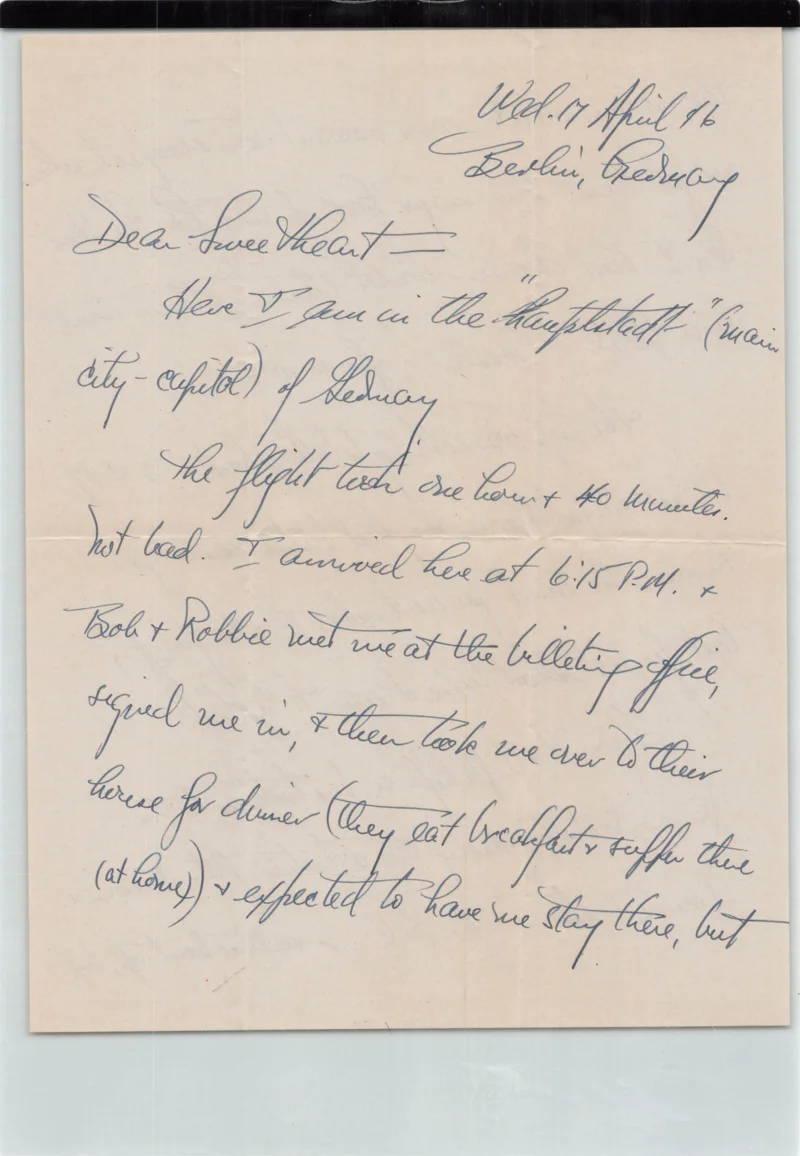 Wed. 17 April 46
Berlin, Germany
Dear Sweetheart —
Here I am in the "Hauptstadt" (main
city - capitol) of Germany
The flight took one hour + 40 minutes.
Not bad. I arrived here at 6:15 P.M. +
Bob + Robbie met me at the billeting office,
signed me in, + then took me over to their
house for dinner (they eat breakfast + supper there
(at home)) + expected to have me stay there, but